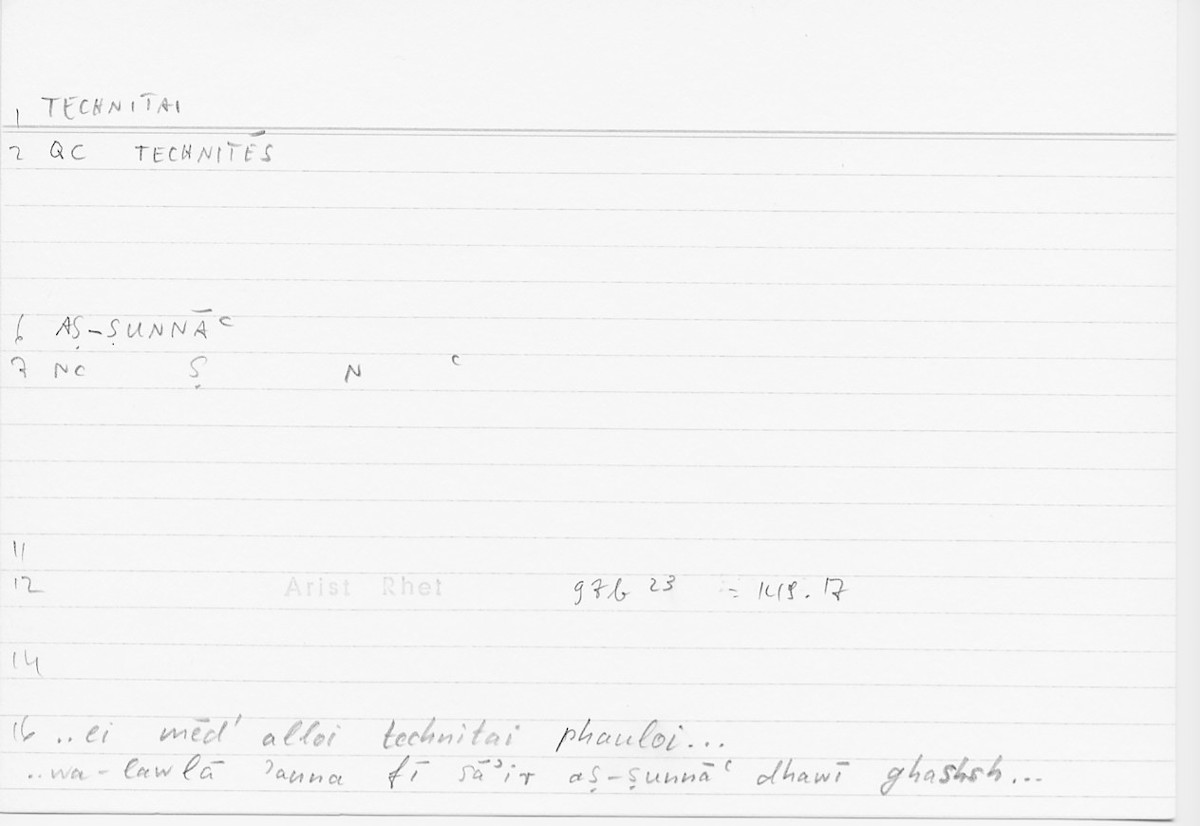 1 TECHNITAI
2 QC TECHNITĒS
6 AṢ-ṢUNNĀʿ
7 NC Ṣ N ʿ
11
12 Arist Rhet 97b 23 = 149.17
14
16 ..ei mēd' alloi technitai phauloi...
..wa-lawlā ʾanna fī sāʾir aṣ-ṣunnāʿ dhawī ghashsh...